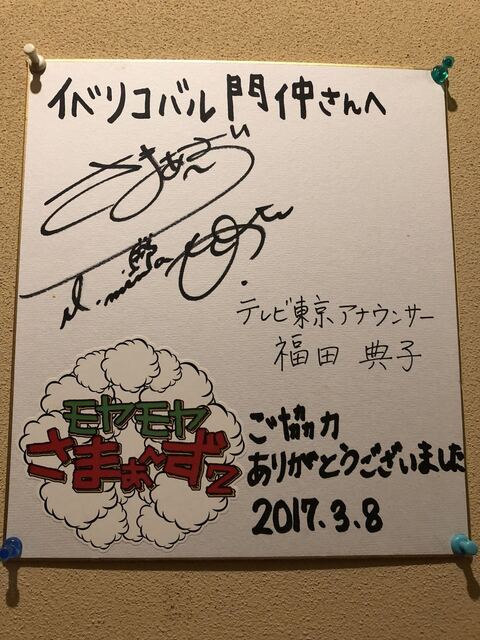 イベリコバル門仲さんへ
さまぁ〜ず
テレビ東京アナウンサー
福田 典子
モヤモヤ
さまぁ〜ず2
ご協力
ありがとうございました
2017.3.8